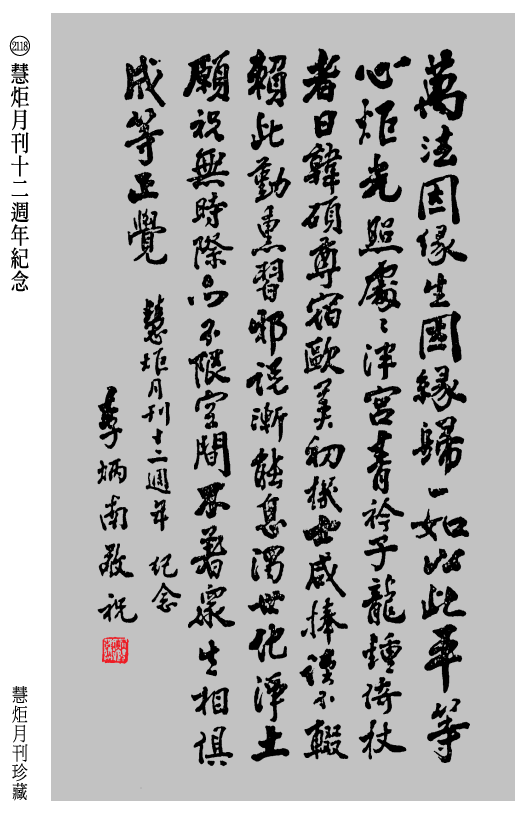 2118 慧炬月刊十二週年紀念
萬法因緣生圓緣歸一如以此平等
心炬光照處〻泮宮青衿子龍鍾倚杖
者日韓碩尊宿歐美初機咸捧讀不輟
賴此勤熏習邪說漸能息濁世化淨土
願祝無時際亦不限空間不著眾生相俱
成等正覺
慧炬月刊十二週年 紀念
李炳南敬祝
慧炬月刊珍藏